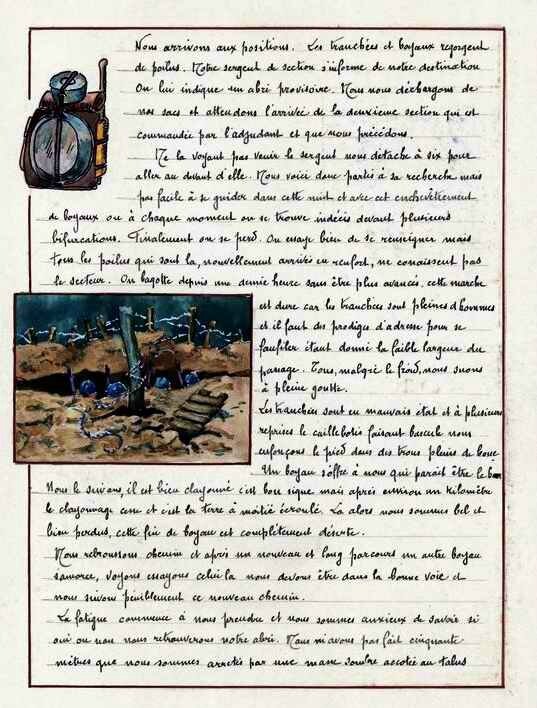 Nous arrivons aux positions. Les tranchées et boyaux regorgent
de poilus. Notre sergent de section s'informe de notre destination
On lui indique un abri provisoire. Nous nous déchargeons de
nos sacs et attendons l'arrivée de la deuxième section qui est
commandée par l'adjudant et que nous précédons.
Ne la voyant pas venir le sergent nous détache à six pour
aller au devant d'elle. Nous voici donc partis à sa recherche mais
pas facile à se guider dans cette nuit et avec cet enchevêtrement
de boyaux ou à chaque moment on se trouve indécis devant plusieurs
bifurcations. Finalement on se perd. On essaye bien de se renseigner mais
tous les poilus qui sont la, nouvellement arrivés en renfort, ne conaissent pas
le secteur. On bagotte depuis une demie heure sans être plus avancés, cette marche
est dure car les tranchées sont pleines d'hommes
et il faut des prodiges d'adresse pour se
faufiler étant donné la faible largeur du
passage. Tous, malgré le froid, nous suons
à pleine goutte.
Les tranchées sont en mauvais état et à plusieurs
reprises le caillebotis faisant bascule nous
enfonçons le pied dans des trous pleins de boue
Un boyau s'offre à nous qui parait être le bon
Nous le suivons, il est bien clayonné c'est bon signe mais après environ un kilomètre
le clayonnage cesse et c'est la terre à moitié écroulé. La alors nous sommes bel et
bien perdus, cette fin de boyau est complètement déserte.
Nous rebroussons chemin et après un nouveau et long parcours un autre boyau
s'amorce, voyons essayons celui la nous devons être dans la bonne voie et
nous suivons péniblement ce nouveau chemin.
La fatigue commence à nous prendre et nous sommes anxieux de savoir si
oui ou non nous retrouverons notre abri. Nous n'avons pas fait cinquante
mètres que nous sommes arretés par une masse sombre accotée au talus